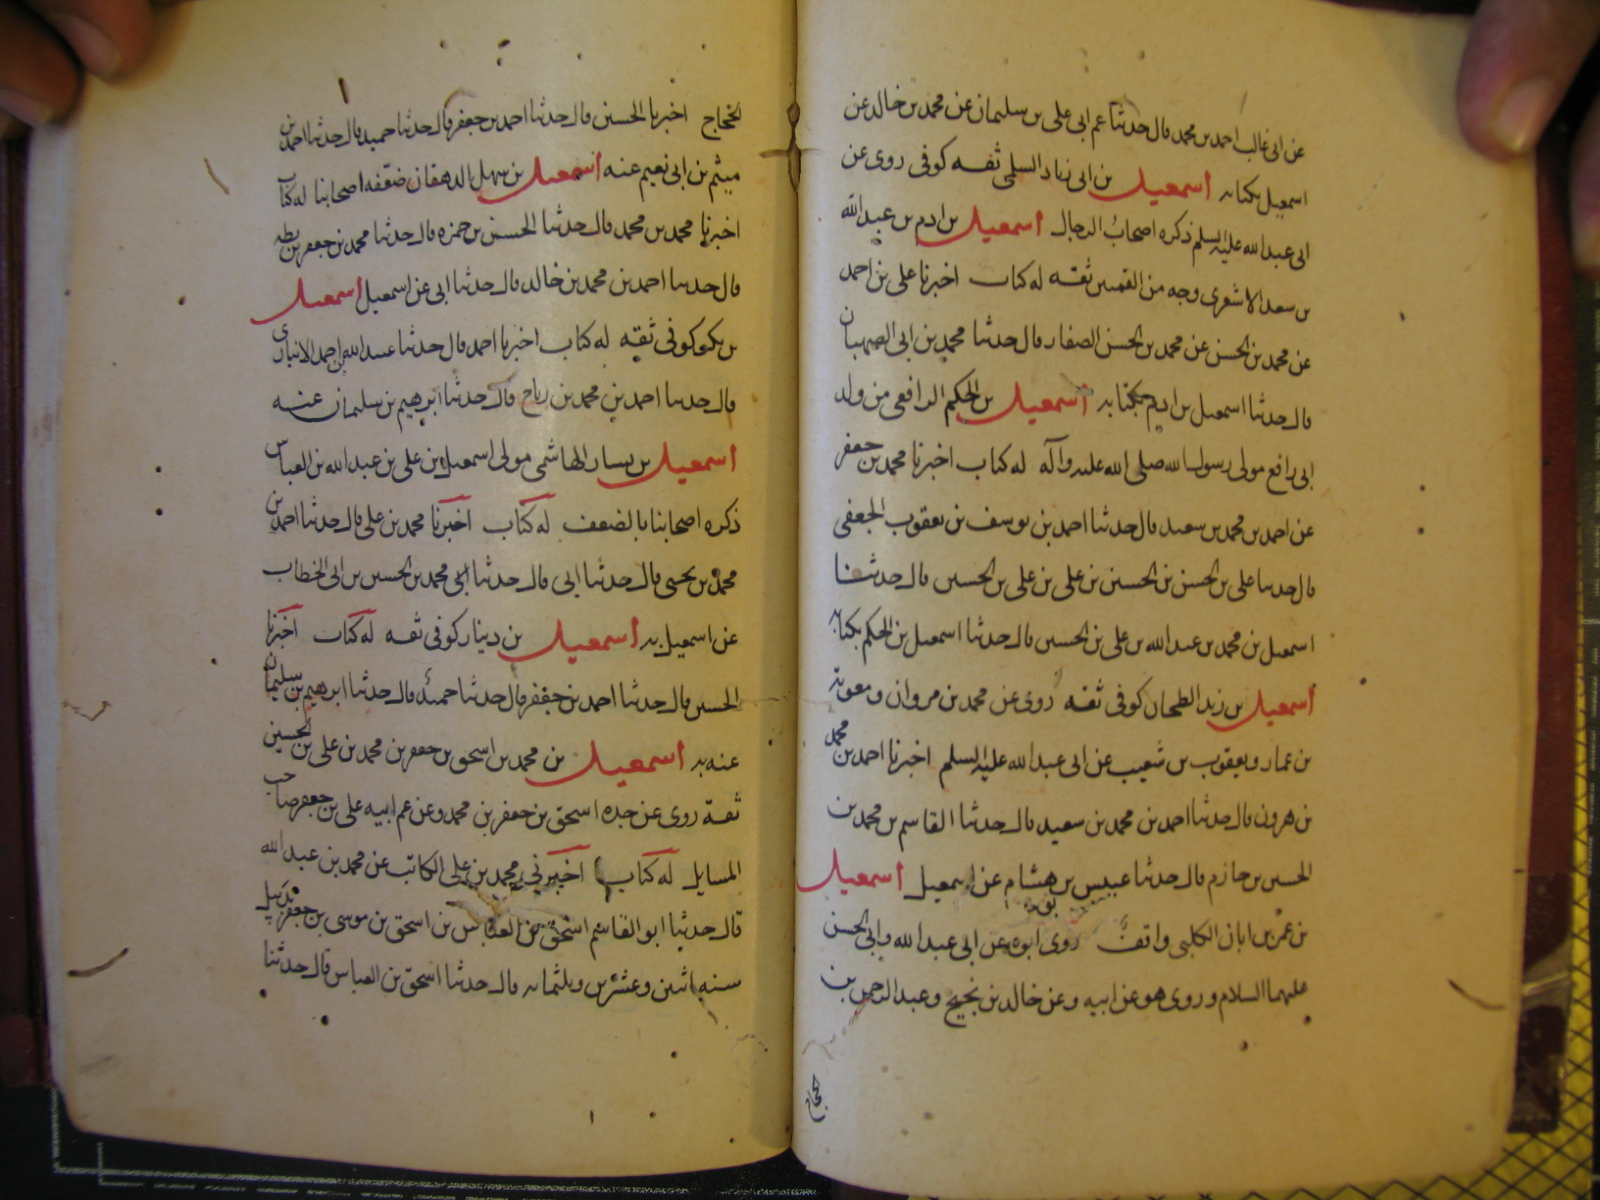 عن ابى غالب احمد بن محمد قال حدثنا عم ابى على بن سليمان عن محمد بن خالد عن
اسمعيل بكتابه اسمعيل بن ابى زياد السلمى ثقه كوفى روى عن
ابى عبد الله عليه السلم ذكره اصحاب الرجال اسمعيل بن ادم بن عبد الله
بن سعد الاشعرى وجه من القميين ثقه له كتاب اخبرنا على بن احمد
عن محمد بن الحسن عن محمد بن الحسن الصفار قال حدثنا محمد بن ابى الصهبان
قال حدثنا اسمعيل بن ادم بكتابه اسمعيل بن الحكم الرافعى من ولد
ابى رافع مولى رسول الله صلى الله عليه وآله له كتاب اخبرنا محمد بن جعفر
عن احمد بن محمد بن سعيد قال حدثنا احمد بن يوسف بن يعقوب الجعفى
قال حدثنا على بن الحسن بن الحسين بن على بن على بن الحسين قال حدثنا
اسمعيل بن محمد بن عبد الله بن على بن الحسين قال حدثنا اسمعيل بن الحكم بكتابه
اسمعيل بن زيد الطحان كوفى ثقه روى عن محمد بن مروان ومعويه
بن عمار ويعقوب بن شعيب عن ابى عبد الله عليه السلم اخبرنا احمد بن محمد
بن هرون قال حدثنا احمد بن محمد بن سعيد قال حدثنا القاسم بن محمد بن
الحسين بن حازم قال حدثنا عبيس بن هشام عن اسمعيل اسمعيل
بن عمر بن ابان الكلبى واقف روى ابوه عن ابى عبد الله وابى الحسن
عليهما السلام وروى هو عن ابيه وعن خالد بن نجيح وعبد الرحمن بن
الحجاج
الحجاج اخبرنا الحسين قال حدثنا احمد بن جعفر قال حدثنا حميد قال حدثنا احمد بن
ميثم بن ابى نعيم عنه اسمعيل بن سهل الدهقان ضعفه اصحابنا له كتاب
اخبرنا محمد بن محمد قال حدثنا الحسن بن حمزه قال حدثنا محمد بن جعفر بن بطه
قال حدثنا احمد بن محمد بن خالد قال حدثنا ابى عن اسمعيل اسمعيل
بن بكر كوفى ثقه له كتاب اخبرنا احمد قال حدثنا عبيد الله بن احمد الانبارى
قال حدثنا احمد بن محمد بن رباح قال حدثنا ابرهيم بن سليمان عنه
اسمعيل بن يسار الهاشمى مولى اسمعيل بن على بن عبد الله بن العباس
ذكره اصحابنا بالضعف له كتاب اخبرنا محمد بن على قال حدثنا احمد بن
محمد بن يحيى قال حدثنا ابى قال حدثنا محمد بن الحسين بن ابى الخطاب
عن اسمعيل به اسمعيل بن دينار كوفى ثقه له كتاب اخبرنا
الحسين قال حدثنا احمد بن جعفر قال حدثنا حميد قال حدثنا ابرهيم بن سليمان
عنه به اسمعيل بن محمد بن اسحق بن جعفر بن محمد بن على بن الحسين
ثقة روى عن جده اسحق بن جعفر بن محمد وعن عم ابيه على بن جعفر صاحب
المسايل له كتاب اخبرنى محمد بن على الكاتب عن محمد بن عبد الله
قال حدثنا ابو القاسم اسحق بن العباس بن اسحق بن موسى بن جعفر
سنه اثنين وعشرين وثلثمائه قال حدثنا اسحق بن العباس قال حدثنا